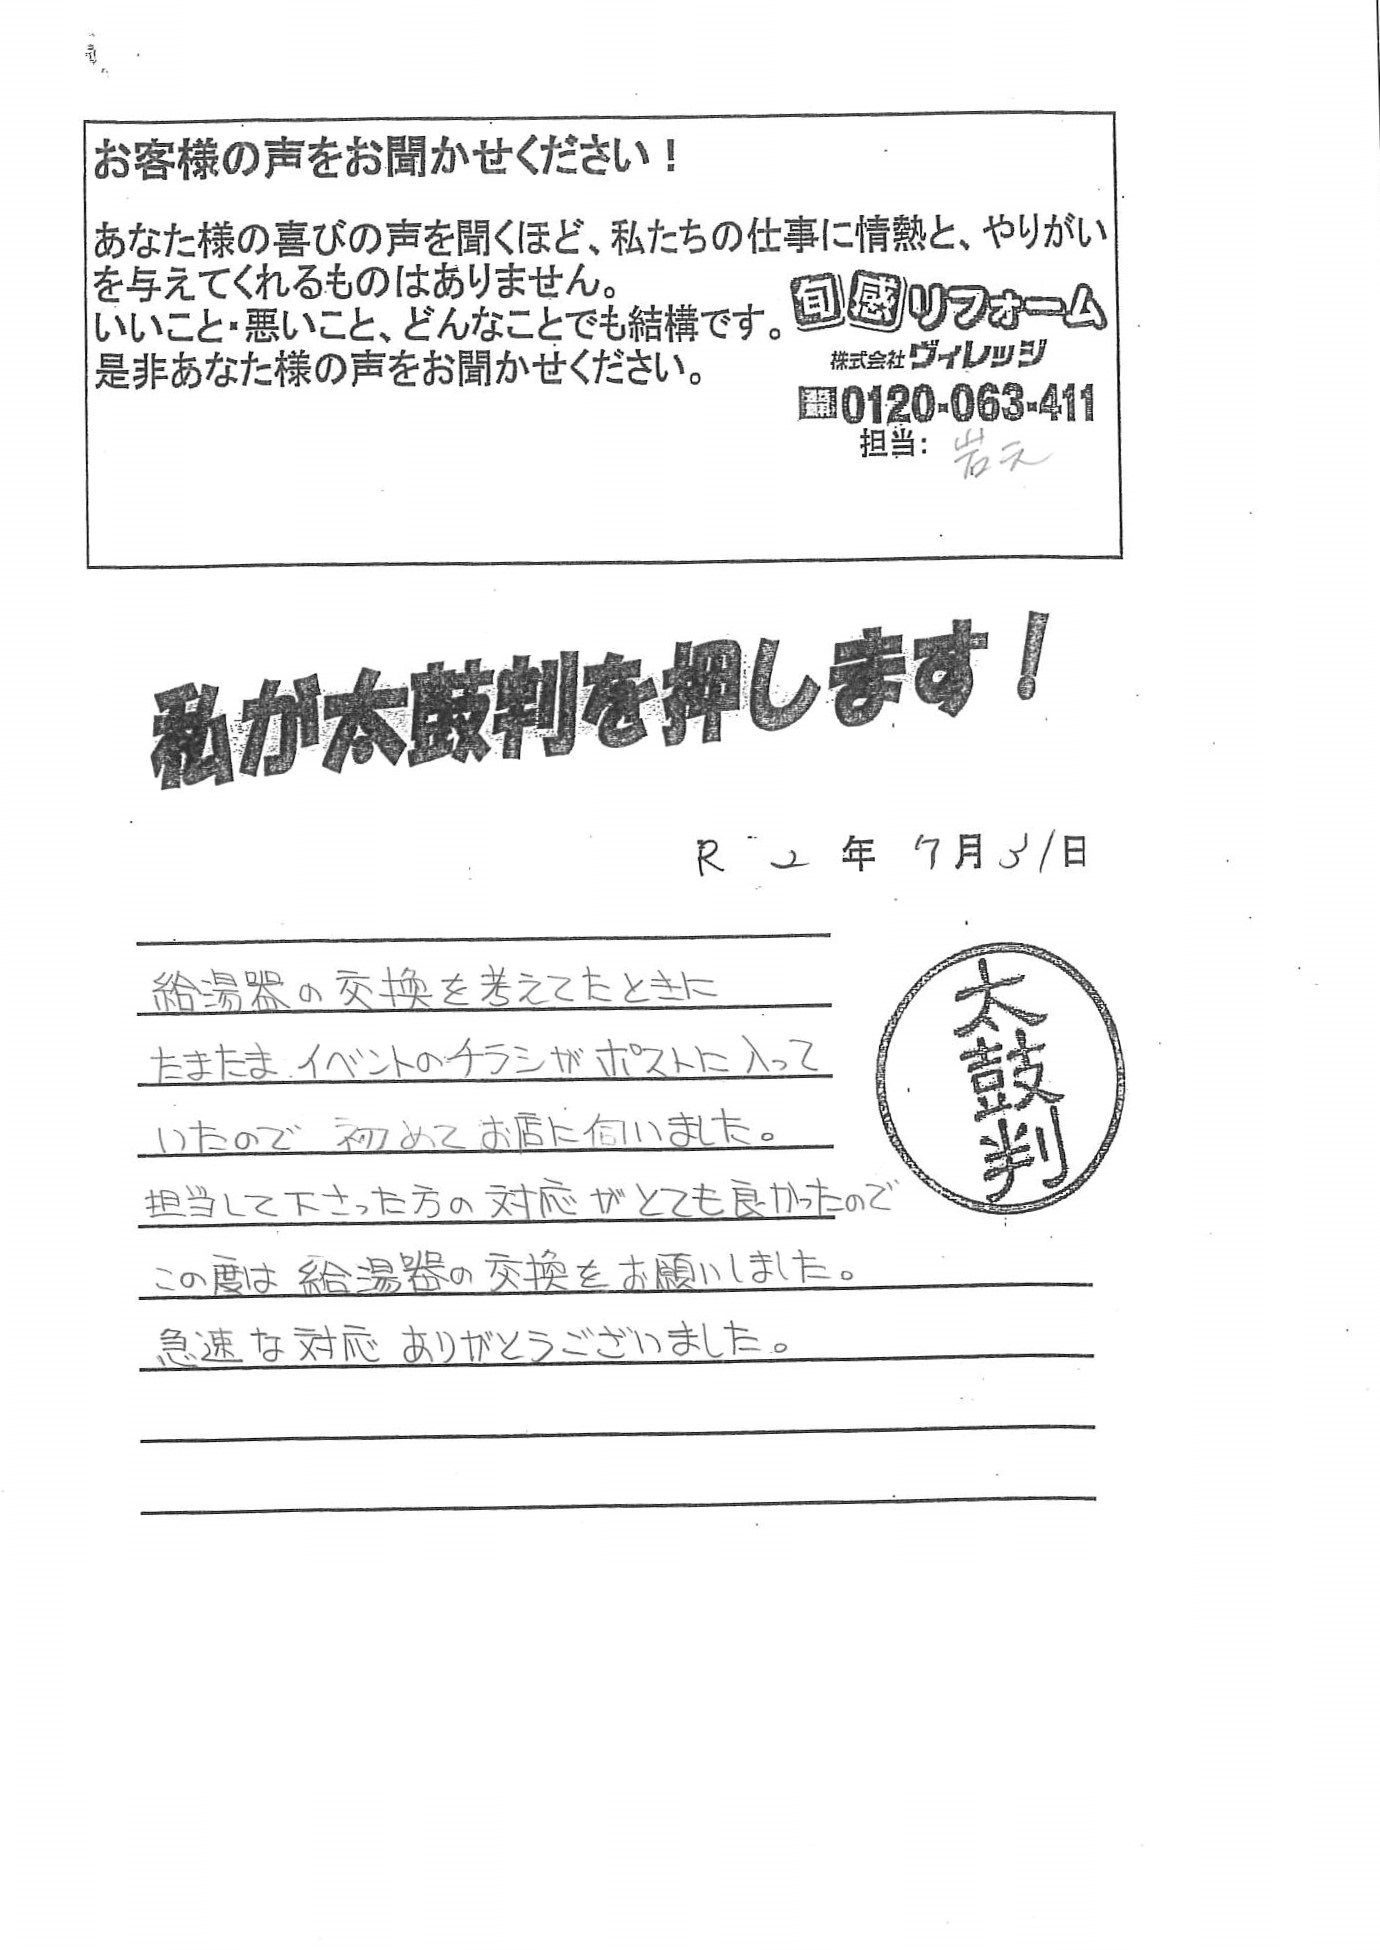 お客様の声をお聞かせください!
あなた様の喜びの声を聞くほど、私たちの仕事に情熱と、やりがい
を与えてくれるものはありません。
いいこと・悪いこと、どんなことでも結構です。
是非あなた様の声をお聞かせください。
旬感リフォーム
株式会社ヴィレッジ
0120-063-411
担当:岩元
私が太鼓判を押します!
R 2 年 7月31日
給湯器の交換を考えてたときに
たまたま イベントのチラシがポストに入って
いたので 初めてお店に伺いました。
担当して下さった方の対応がとても良かったので
この度は 給湯器の交換をお願いしました。
急速な対応 ありがとうございました。
太鼓判